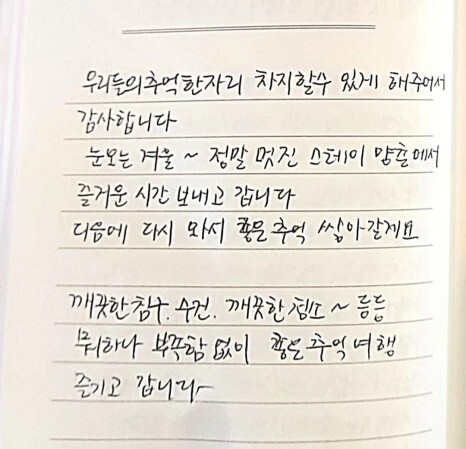 우리들의 추억 한자리 차지할수 있게 해주어서
감사합니다
눈오는 겨울 ~ 정말 멋진 스테이 양촌에서
즐거운 시간 보내고 갑니다
다음에 다시 와서 좋은 추억 쌓아갈게요
깨끗한 침구. 수건. 깨끗한 청소 ~ 등등
뭐하나 부족함 없이 좋은 추억 여행
즐기고 갑니다~